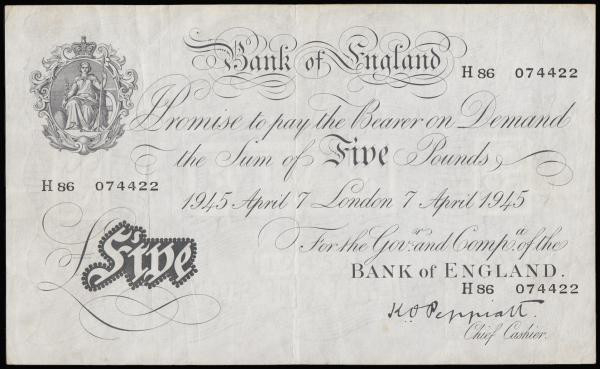 Bank of England
H 86 074422
Promise to pay the Bearer on Demand
the Sum of Five Pounds
H 86 074422
1945 April 7 London 7 April 1945
£ Five
For the Govr. and Compa. of the
BANK of ENGLAND.
H 86 074422
K O Peppiatt.
Chief Cashier.